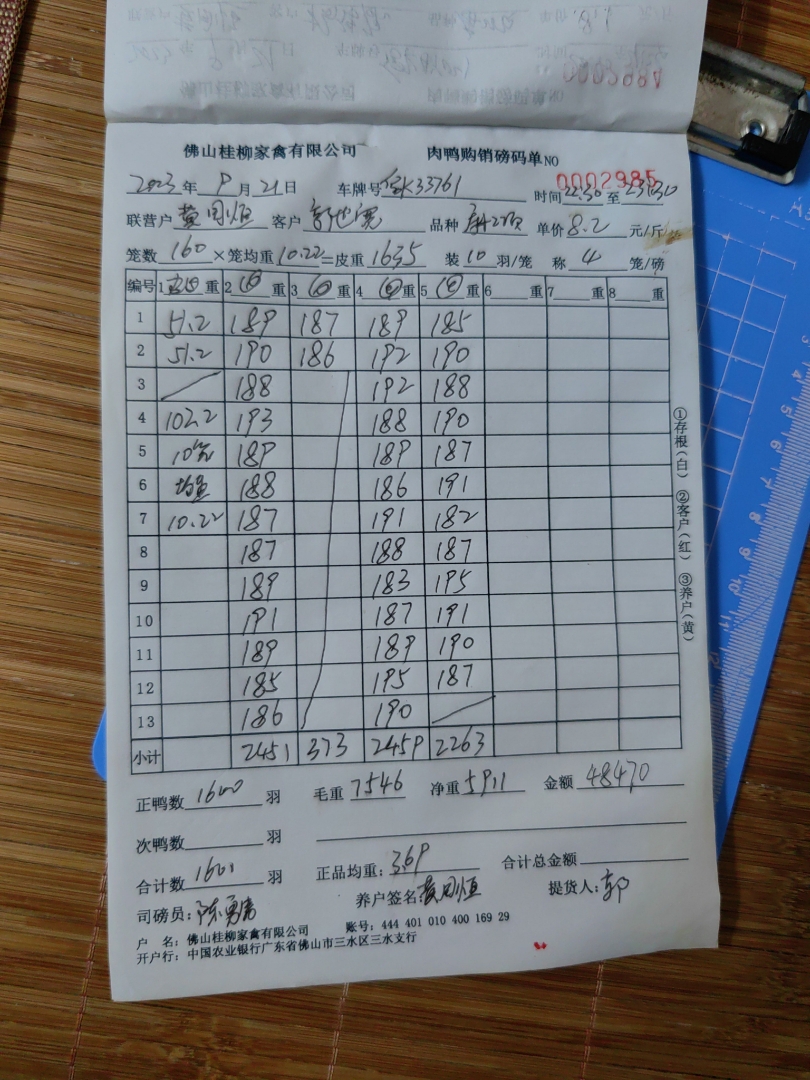 佛山桂柳家禽有限公司 肉鸭购销磅码单NO 0002985
2023年9月21日 车牌号 33761 时间22:30至23:30
联营户 黄国恒 客户 品种 单价8.2元/斤
笼数160×笼均重10.22=皮重1635 装10羽/笼 称4笼/磅
编号 1 重 2 重 3 重 4 重 5 重 6 重 7 重 8 重
1 51.2 189 187 189 185
2 51.2 190 186 192 190
3 188 192 188
4 102.2 193 188 190
5 10笼 189 189 187
6 均重 188 186 191
7 10.22 187 191 182
8 187 188 187
9 189 183 195
10 191 187 191
11 189 189 190
12 185 195 187
13 186 190
小计 2451 373 2459 2263
正鸭数1600羽 毛重7546 净重5911 金额48470
次鸭数 羽
合计数1600羽 正品均重:3.69 合计总金额
司磅员: 养户签名:黄国恒 提货人:郭
户 名: 佛山桂柳家禽有限公司 账号: 444 401 010 400 169 29
开户行: 中国农业银行广东省佛山市三水区三水支行
①存根(白) ②客户(红) ③养户(黄)